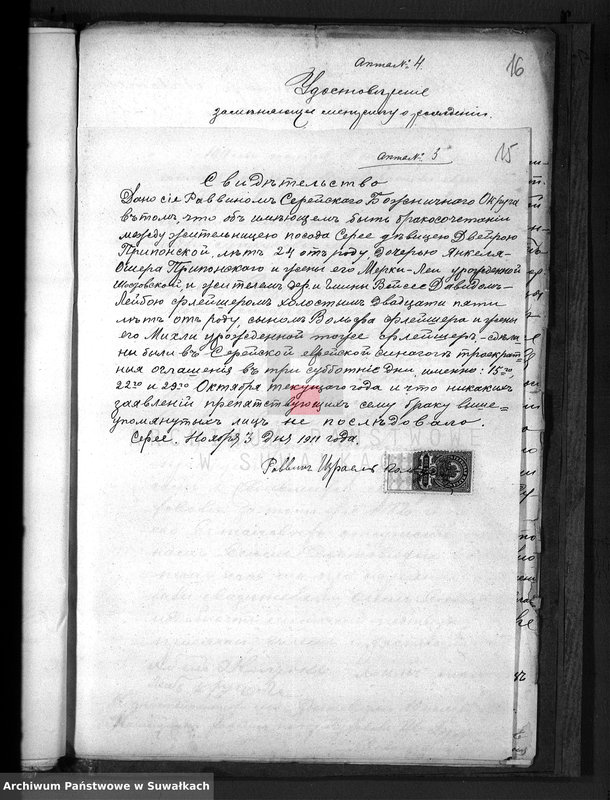 Акта № 4.
16
Удостоверение
заменяющее метрику о рождении.
Акта № 3
15
Свидѣтельство
Дано сіе Раввиномъ Серейскаго Божничнаго Округа
въ томъ, что объ имеющемъ быть бракосочетаніи
между жительницею посада Серее дѣвицею Двейрою
Припонской, лѣтъ 24 отъ роду, дочерью Янкеля-
Ошера Припонскаго и жены его Мерки-Леи урожденной
и жителемъ дер. и гмины Вейсее Давидомъ-
Лейбою Флейшеромъ холостымъ двадцати пяти
лѣтъ отъ роду, сыномъ Вольфа Флейшера и жены
его Михли урожденной тоже Флейшеръ, - сдела
ны были въ Серейской еврейской синагогѣ троекрат=
ния оглашения въ три субботніе дни, именно: 15го,
22го и 29го Октября текущаго года и что никакихъ
заявленій препятствующихъ сему браку выше=
упомянутыхъ лицъ не послѣдовало.
Серее, Ноября 3 дня 1911 года.
Раввинъ Израель
ARCHIWUM PAŃSTWOWE
W SUWAŁKACH
Archiwum Państwowe w Suwałkach